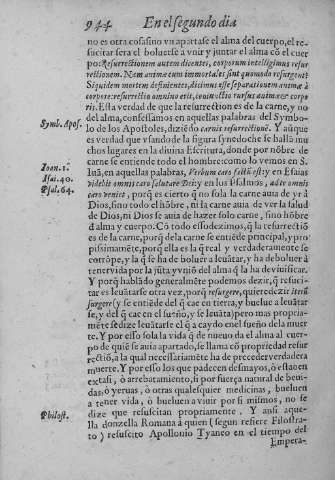 944 En el segundo dia
no es otra cosa sino vn apartase el alma del cuerpo, el re-
sucitar sera el boluerse a vnir y juntar el alma cõ el cuer
po: Resurrectionem autem dicentes, corporum intelligimus resur
rectionem. Nem animæ cum immortales sint quomodo resurgent?
Siquidem mortem definientes, dicimus esse separationem animæ à
corpore: resurrectio omnino erit, coniunctio rursus animæ & corpo
ris. Esta verdad de que la resurrection es de la carne, y no
del alma, confessamos en aquellas palabras del Symbo-
Symb. Apos.
lo de los Apostoles, diziẽdo carnis resurrectionẽ. Y aũque
es verdad que vsando de la figura syndoche se halla mu
chos lugares en la diuina Escritura, donde por nõbre de
carne se entiende todo el hombre: como lo vemos en S.
Ioan. 1.
luã, en aquellas palabras, Verbum caro factũ est; y en Esaias
Isai. 40.
videbit omnis caro salutare Dei; y en los Psalmos, ad te omnis
Psal. 64.
caro veniet, porq̃ es cierto q̃ no sola la carne auia de ver à
Dios, sino todo el hõbre, ni la carne auia de ver la salud
de Dios, ni Dios se auia de hazer solo carne, sino hõbre
d̃ alma y cuerpo. Cõ todo esso dezimos, q̃ la resurrectiõ
es de la carne, porq̃ de la carne se entiẽde principal, y pro
pissimamẽte, porq̃ ella es la q̃ real y verdaderamente se
corrõpe, y la q̃ se ha de boluer a leuãtar, y ha de boluer à
tener vida por la jũta y vniõ del alma q̃ la ha de viuificar.
Y porq̃ hablãdo generalmẽte podemos dezir, q̃ resuci-
tar es leuãtarse otra vez, porq̃ resurgere, quiere dezir iterũ
surgere (y se entiẽde del q̃ cae en tierra, y buelue a leuãtar
se, y del q̃ cae en el sueño, y se leuãta) pero mas propria-
mẽte se dize leuãtarse el q̃ a caydo en el sueño de la muer
te. Y por esso sola la vida q̃ de nueuo da el alma al cuer-
po de quiẽ se auia apartado, se llama cõ propriedad resur
rectiõ, a la qual necessariamẽte ha de preceder verdadera
muerte. Y por esso los que padecen desmayos, ò estã en
extasi, ò arrebatamiento, si por fuerça natural de beui-
das, ò yeruas, ò otras qualesquier medicinas, bueluen
a tener vida, ò bueluen a viuir por si mismos, no se
dize que resuscitan propriamente. Y ansi aque-
Philost.
lla donzella Romana à quien (segun refiere Filostra-
to) resuscito Apollonio Tyaneo en el tiempo del
Empera-